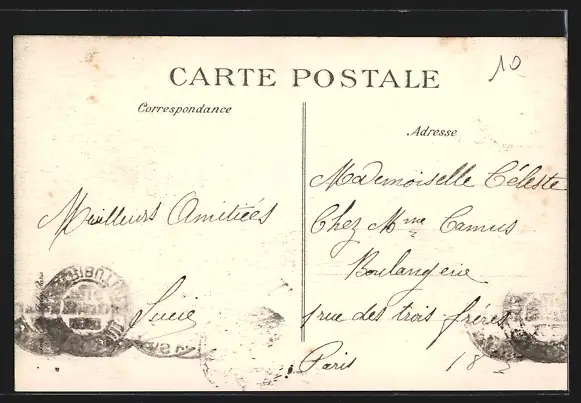 10
CARTE POSTALE
Correspondance
Adresse
Meilleurs Amitiées
Lucie
Mademoiselle Céleste
Chez Mme Camus
Boulangerie
rue des trois frères
Paris 18